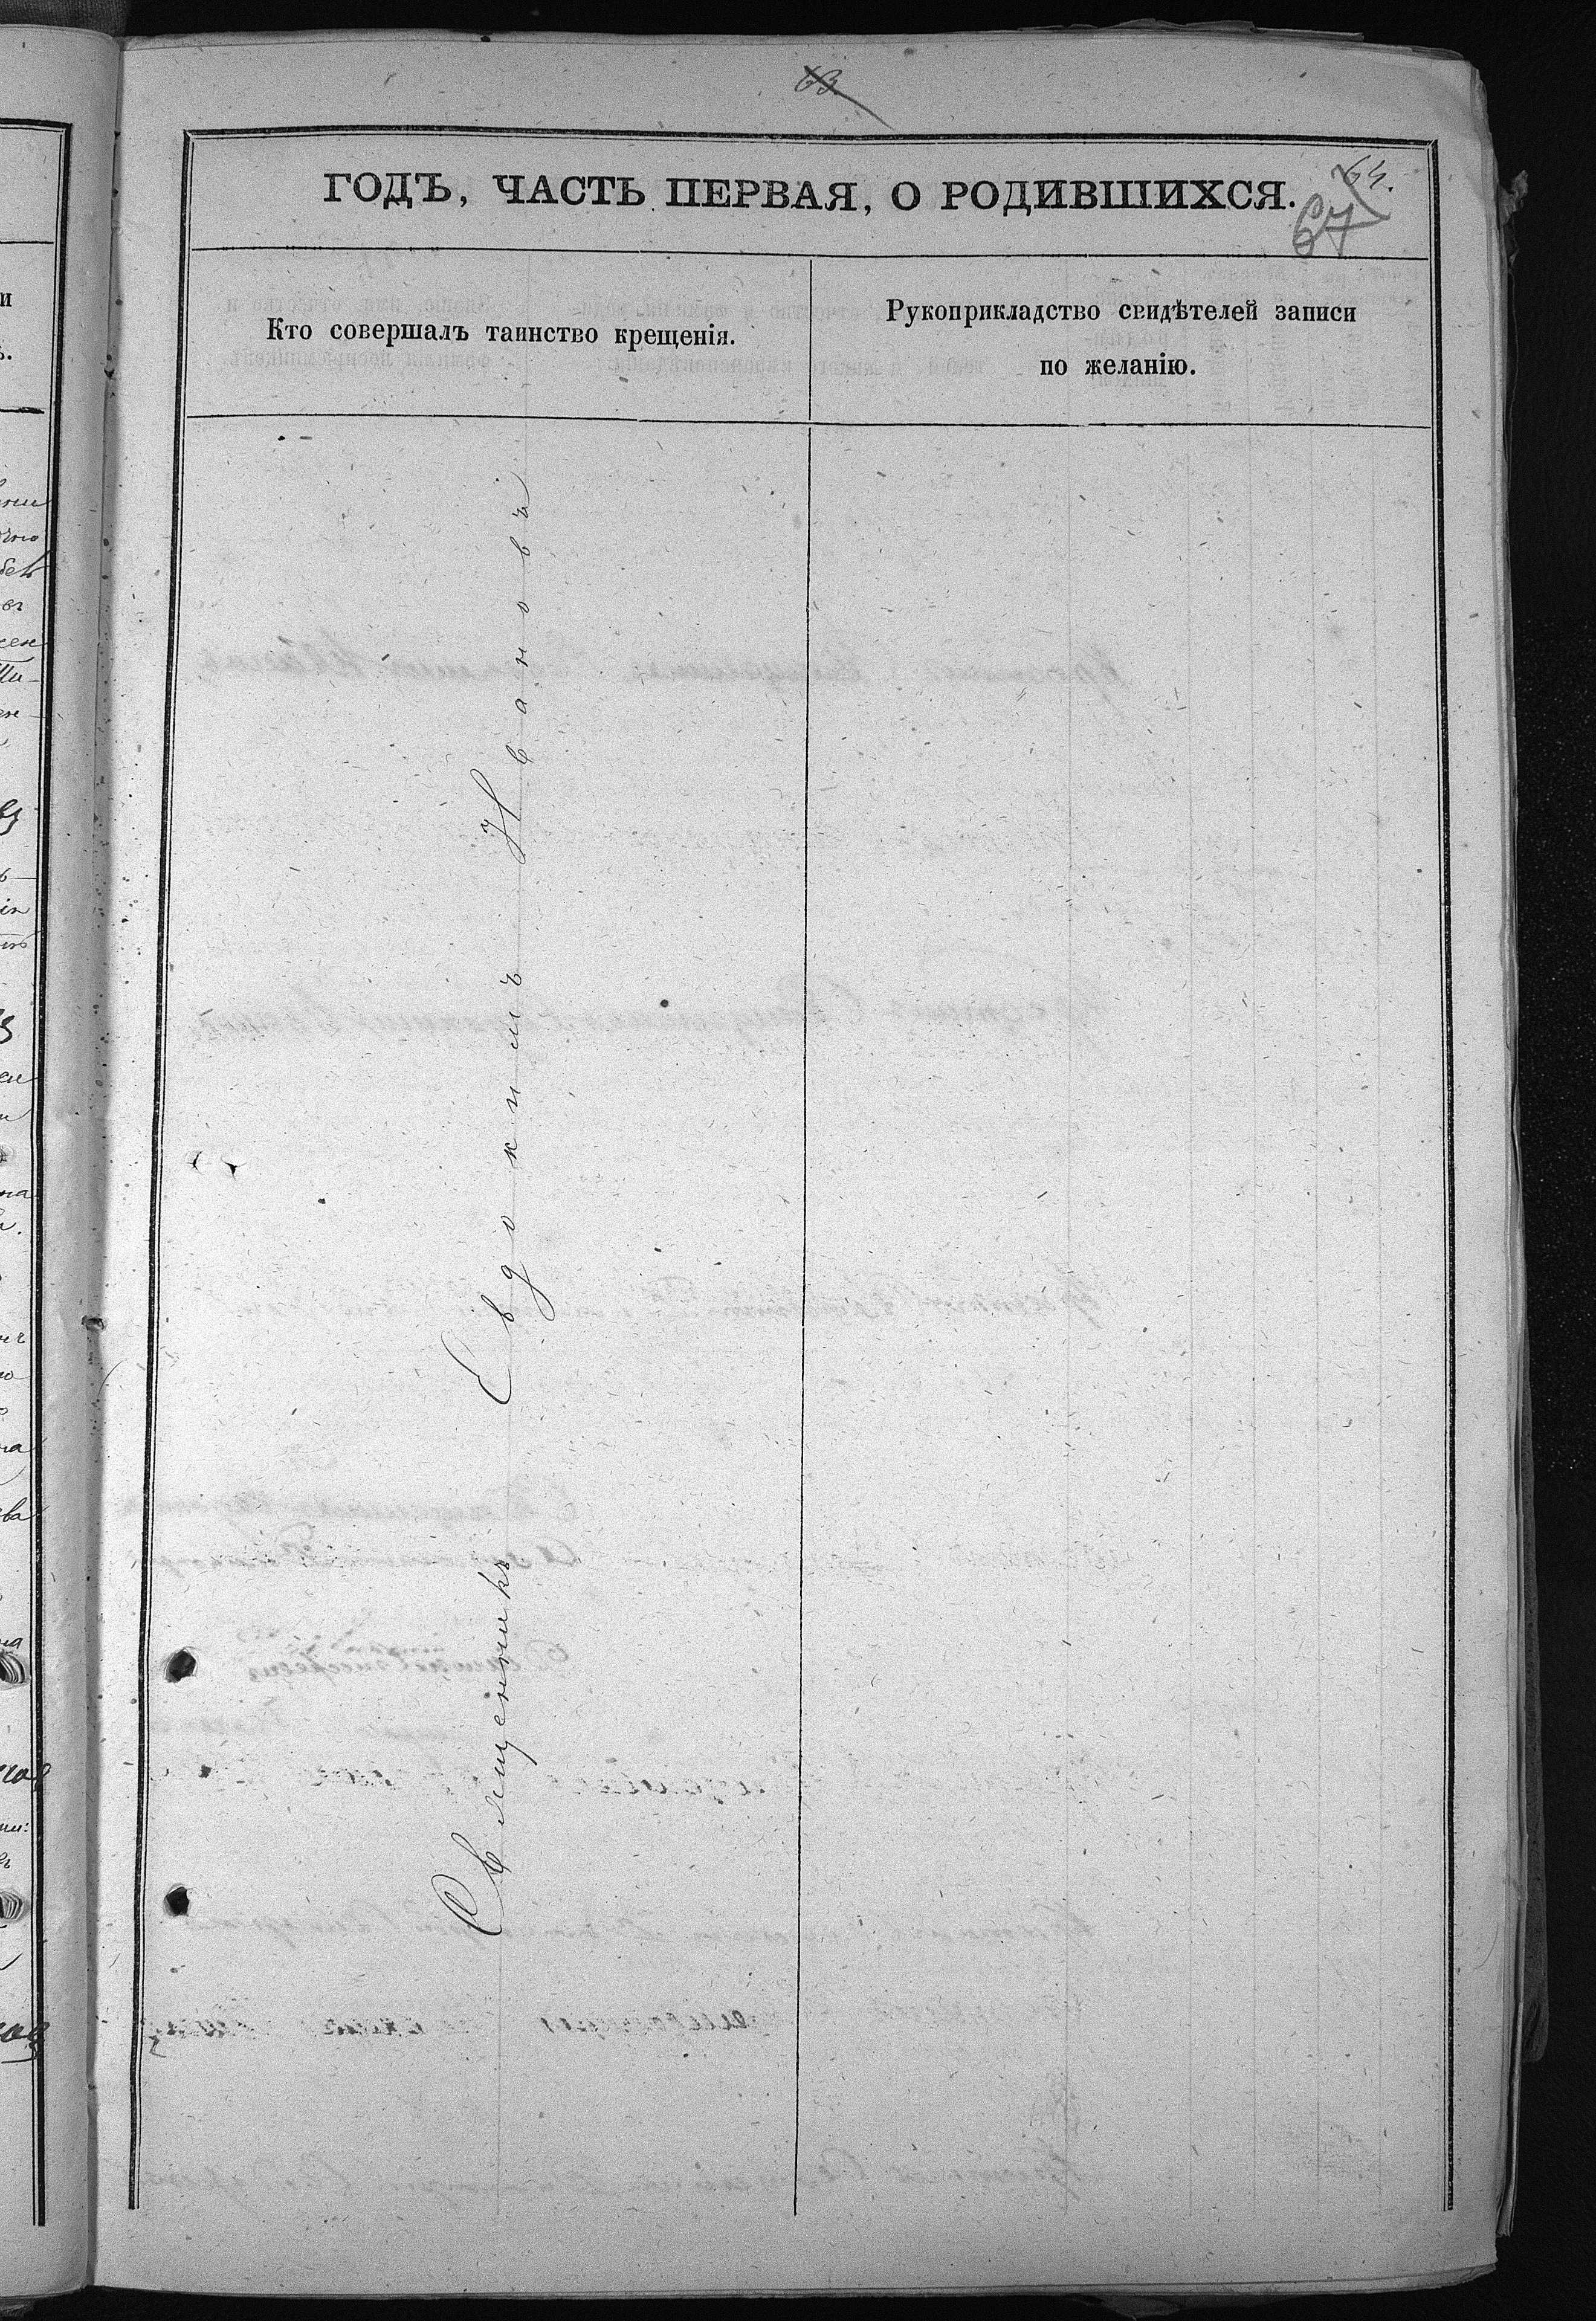 63
ГОДЪ, ЧАСТЬ ПЕРВАЯ, О РОДИВШИХСЯ.
64.
67
Кто совершалъ таинство крещенія.
Рукоприкладство свидѣтелей записи
по желанію.
Священникъ Евдокимъ Ивановъ